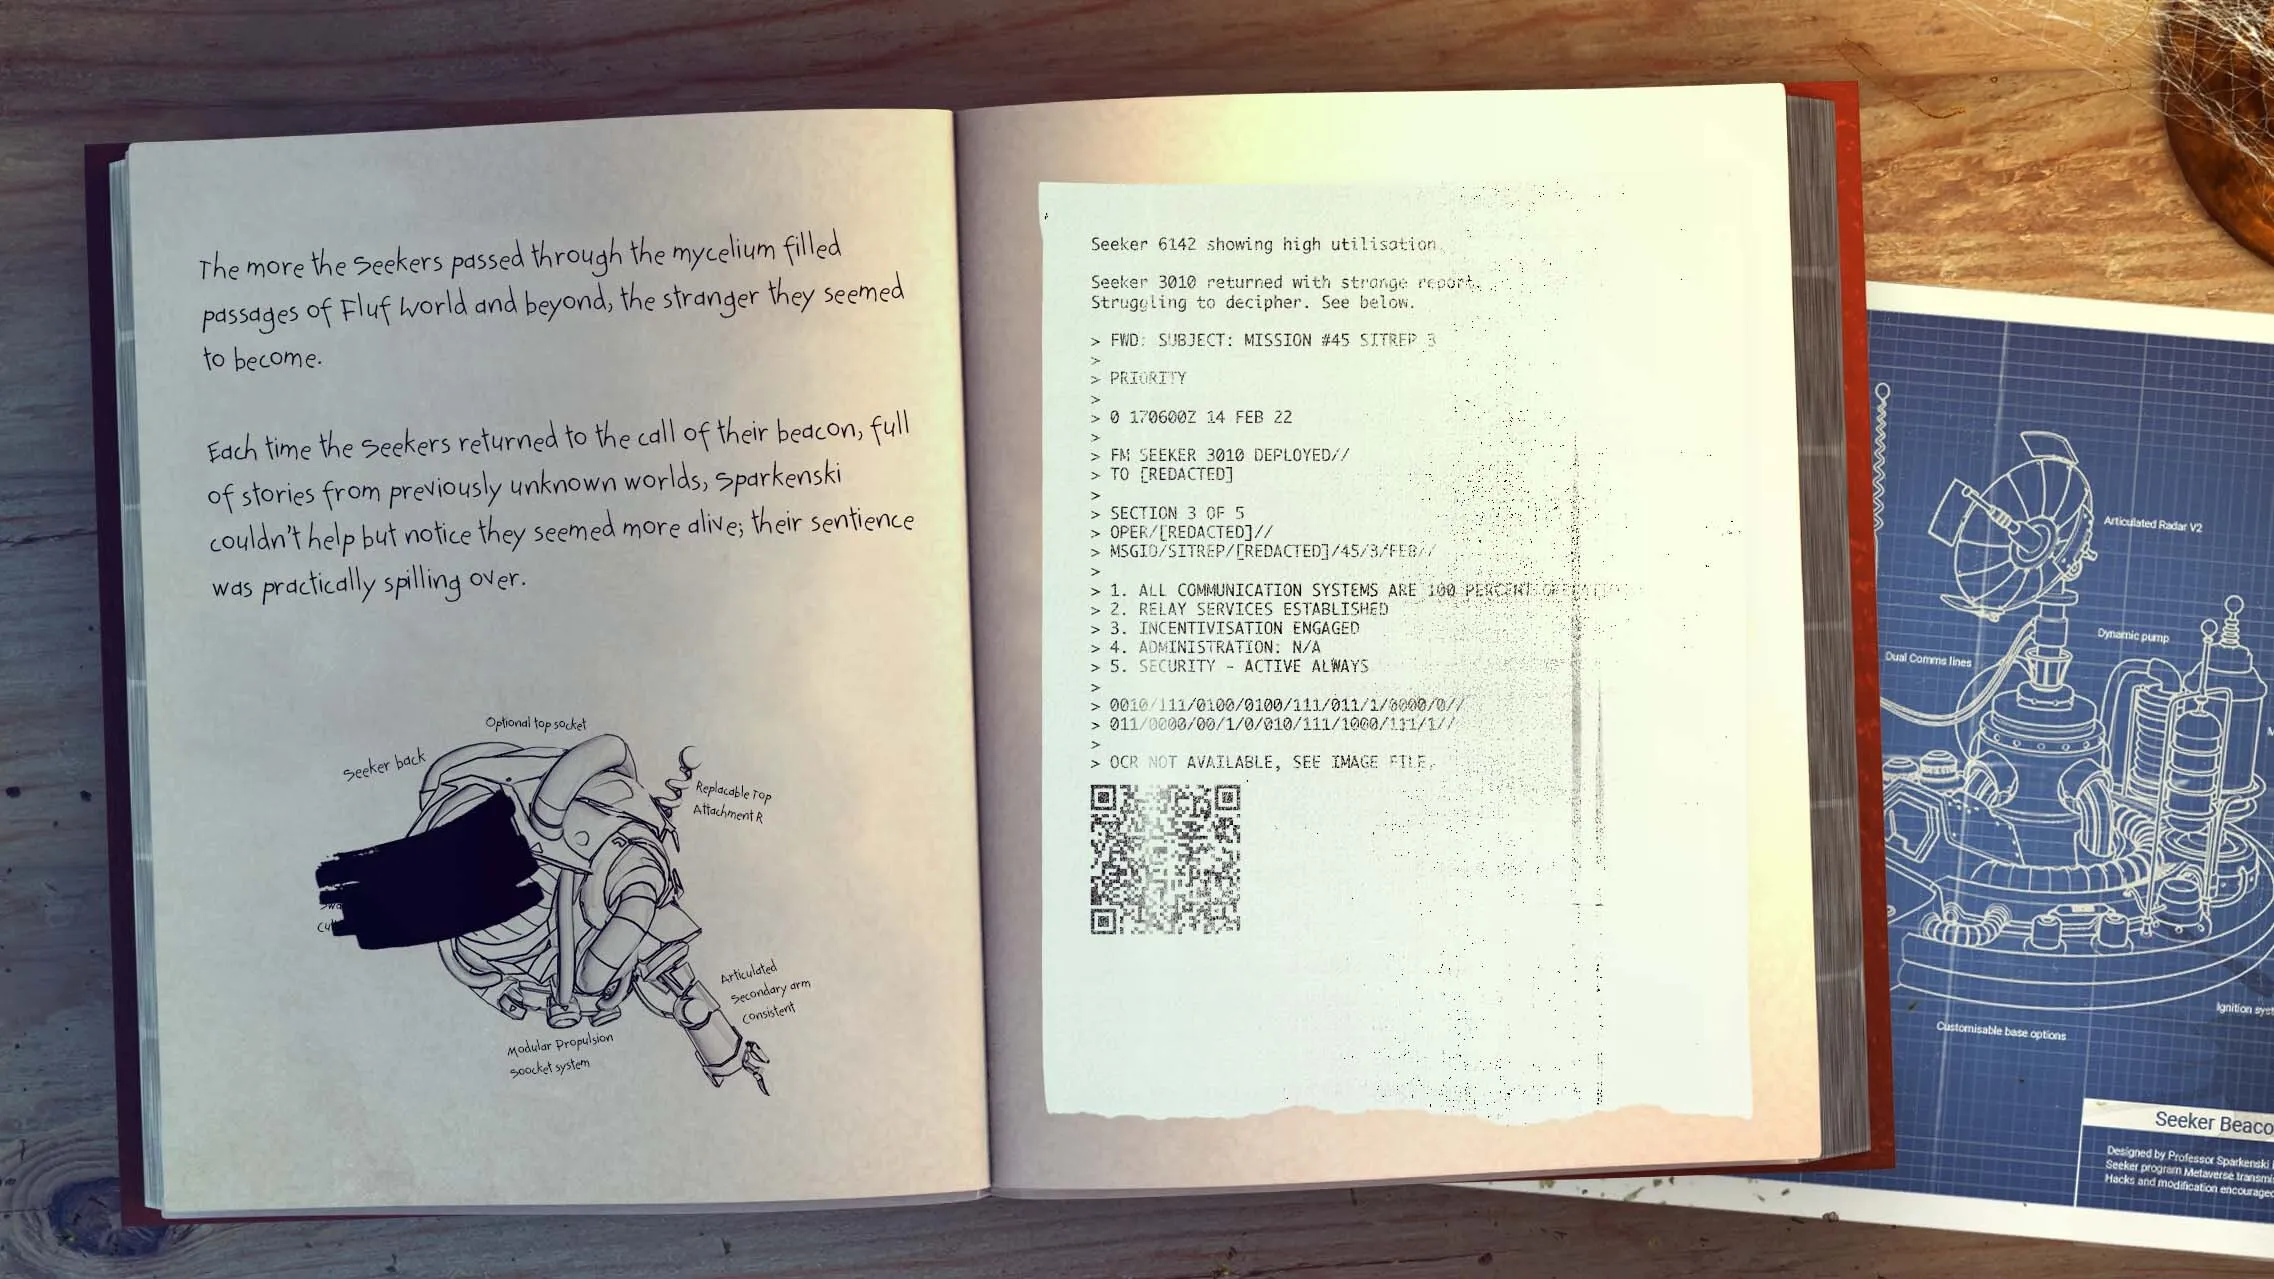 The more the Seekers passed through the mycelium filled
passages of Fluf World and beyond, the stranger they seemed
to become.
Each time the Seekers returned to the call of their beacon, full
of stories from previously unknown worlds, Sparkenski
couldn't help but notice they seemed more alive; their sentience
was practically spilling over.
Optional top socket
Seeker back
Replacable Top
Attachment R
Articulated
Secondary arm
consistent
Modular Propulsion
Soocket system
Seeker 6142 showing high utilisation.
Seeker 3010 returned with strange report.
Struggling to decipher. See below.
> FWD: SUBJECT: MISSION #45 SITREP 3
>
> PRIORITY
>
> 0 170600Z 14 FEB 22
>
> FM SEEKER 3010 DEPLOYED//
> TO [REDACTED]
>
> SECTION 3 OF 5
> OPER/[REDACTED]//
> MSGID/SITREP/[REDACTED]/45/3/FEB//
>
> 1. ALL COMMUNICATION SYSTEMS ARE 100 PERCENT
> 2. RELAY SERVICES ESTABLISHED
> 3. INCENTIVISATION ENGAGED
> 4. ADMINISTRATION: N/A
> 5. SECURITY - ACTIVE ALWAYS
>
> 0010/111/0100/0100/111/011/1/0000/0//
> 011/0000/00/1/0/010/111/1000/111/1//
>
> OCR NOT AVAILABLE, SEE IMAGE FILE.
Articulated Radar V2
Dynamic pump
Dual Comms lines
Ignition
Customisable base options
Seeker
Designed by Professor Sparkenski
Seeker program Metaverse
Hacks and modification